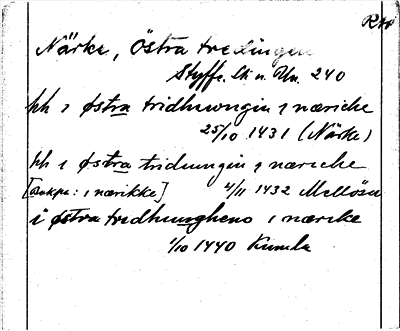 RAp
Närke, Östra tredingen
Styffe. Sk. u. Un. 240
hh i østra tridhwngin i næriche
25/10 1431 (Närke)
hh i østra tridungin i næriche
[Bakpå: i nærikke] 4/11 1432 Mellösa
i østra tredhungheno i nærike
1/10 1440 Kumla